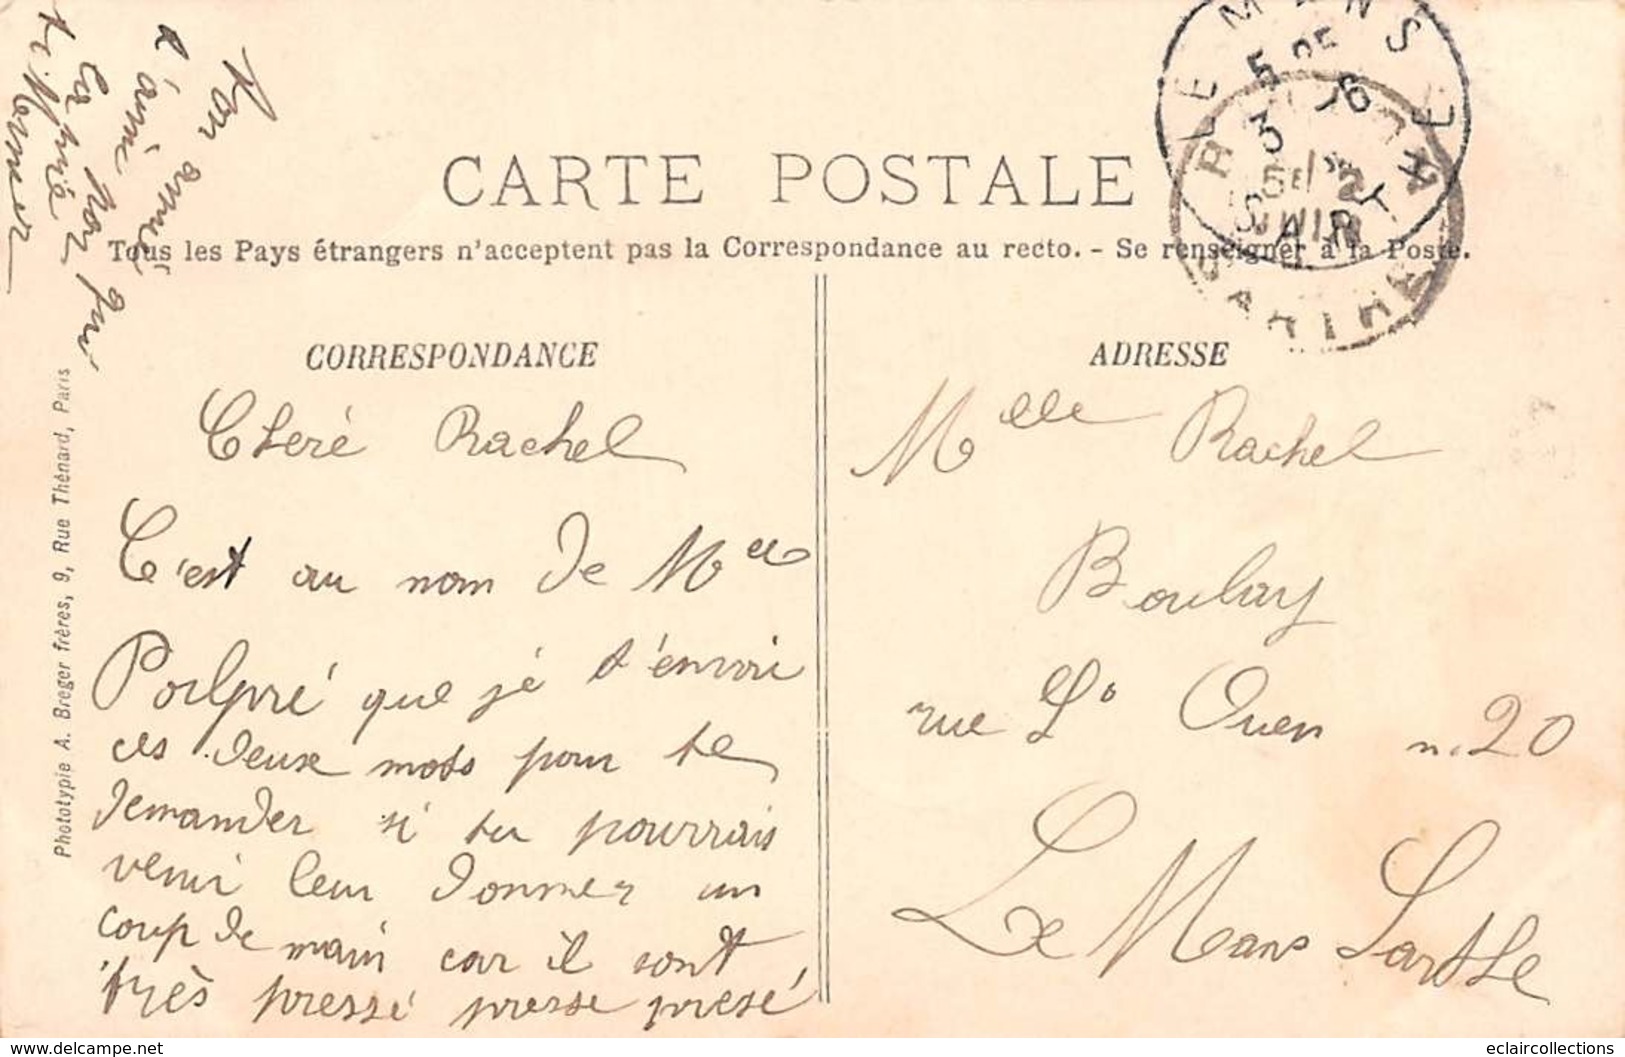 CARTE POSTALE
Tous les Pays étrangers n'acceptent pas la Correspondance au recto. - Se renseigner à la Poste.
CORRESPONDANCE
Cheré Rachel
C'est au nom de Mlle
Poilpré que je t'envoi
ces deux mots pour te
demander si tu pourrais
venir leur donner un
coup de main car il sont
très pressé presse presé
ton
l'amie
ADRESSE
Mlle Rachel
Boulay
rue St Ouen n. 20
Le Mans Sarthe
LE MANS
SARTHE
Phototypie A. Breger frères, 9, Rue Thénard, Paris
eclaircollections